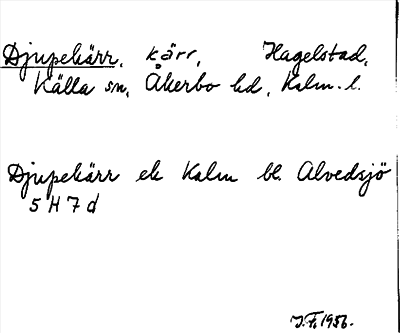 Djupekärr, kärr, Hagelstad,
Källa sn, Åkerbo hd, Kalm. l.
Djupekärr ek Kalm bl. Alvedsjö
5 H 7 d
J.F. 1956.